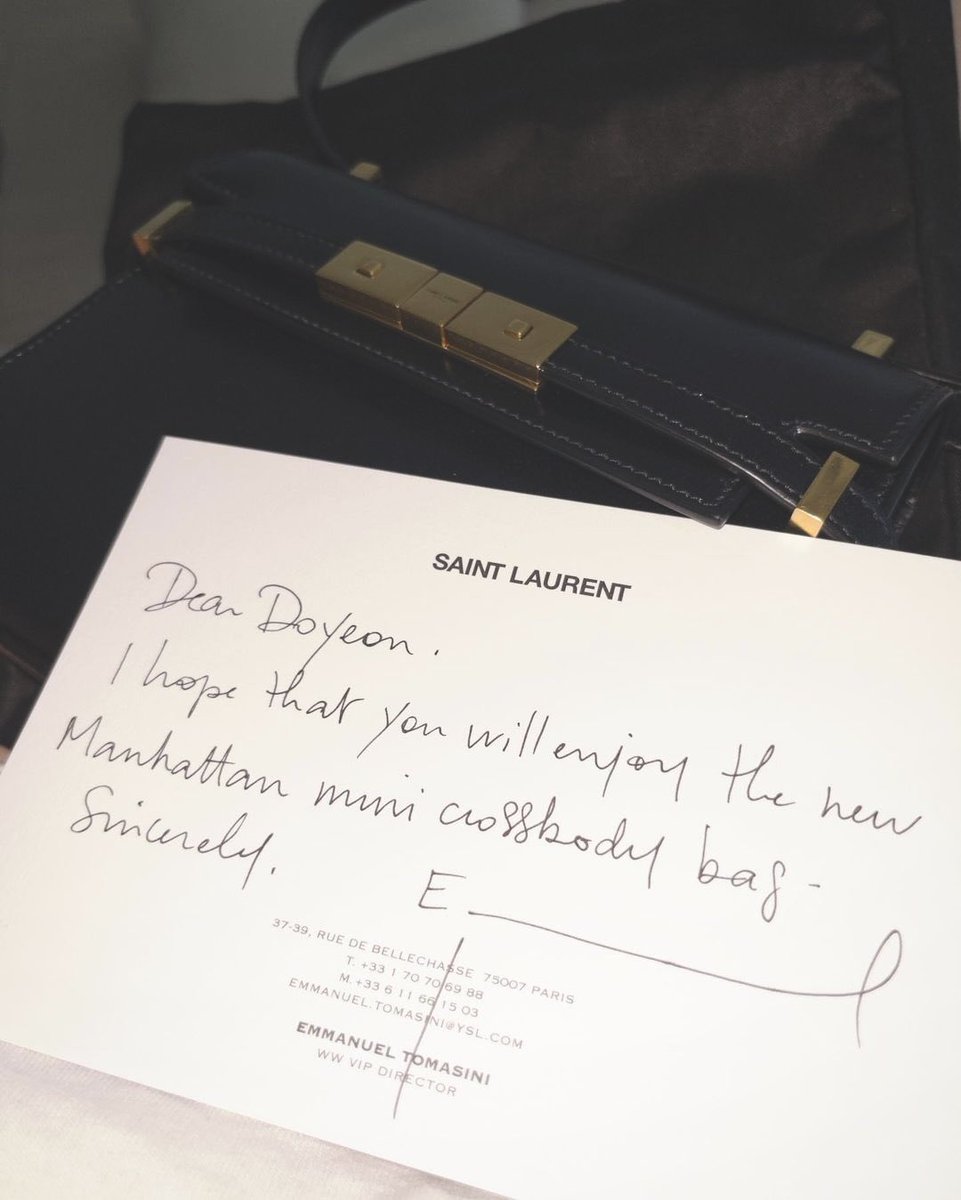 SAINT LAURENT
Dear Doyeon.
I hope that you will enjoy the new
Manhattan mini crossbody bag-
Sincerely.
E
37-39, RUE DE BELLECHASSE 75007 PARIS
T. +33 1 70 70 69 88
M. +33 6 11 66 15 03
EMMANUEL.TOMASINI@YSL.COM
EMMANUEL TOMASINI
WW VIP DIRECTOR